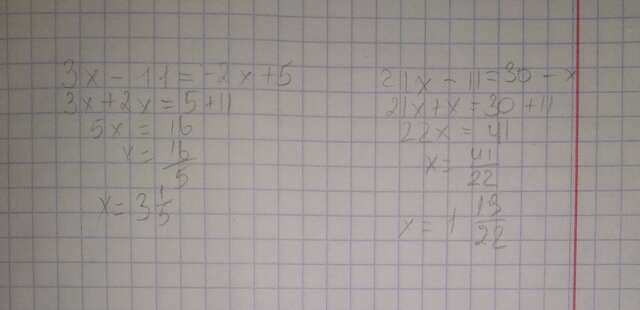 3x - 11 = -2x + 5
3x + 2x = 5 + 11
5x = 16
x = 16/5
x = 3 1/5
21x - 11 = 30 - x
21x + x = 30 + 11
22x = 41
x = 41/22
x = 1 19/22